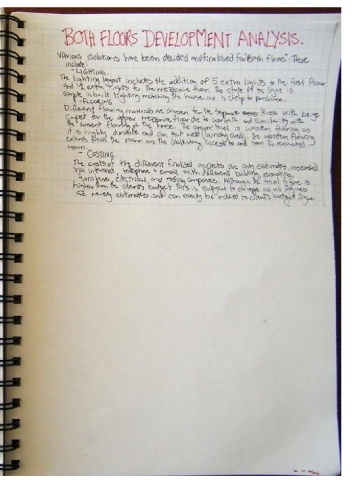 BOTH FLOORS DEVELOPMENT ANALYSIS.
Various solutions have been decided and finalised for Both Floors. These
include:
- LIGHTING.
The lighting layout includes the addition of 5 extra lights to the first floor
and extra lights to the mezzanine floor. The style of the light is
simple inbuilt lighting matching the house and is cheap to purchase.
- FLOORING
Different flooring materials are chosen for the separate floors with beige
carpet for the upper mezzanine floor due to warmth and similarity with
the current flooring of the house. The lower level is wooden flooring as
it is highly durable and can suit well (laundry area). The wooden flooring
extends from the room and the
room.
- COSTING.
The costs of the different finalised aspects are only estimates, researched
via internet, telephone + email with different building, carpeting,
furniture, electrical and companies. Although the final figure is
higher than the clients budget this is subject to change as all figures
are merely estimates and can easily be to clients budget